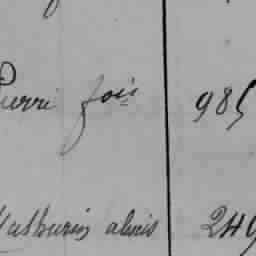 Pierre fois 985
Mathurin alexis 249